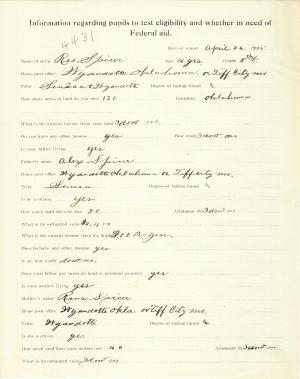 Information regarding pupils to test eligibility and whether in need of
Federal aid.
4431
Date of report April 26, 1915
Name of child Ree Spicer Age 16 yrs. Grade 5th
Home post office Wyandotte Oklahoma, or Tiff City Mo
Tribe Seneca & Wyandotte Degree of Indian blood
How many acres of land do you own 120 Location Oklahoma
What is the annual income from your land I dont no.
Do you have any other income yes How much I dont no
Is your father living yes
Father's name Alex Spicer
Home post office Wyandotte Oklahoma or Tiff City Mo.
Tribe Seneca Degree of Indian blood
Is he a citizen yes
How much land does he own 80 Allotment No. I dont no
What is its estimated value
What is the annual income from his land
Does he have any other income yes
If so, how much I dont no.
Does your father pay taxes on land or personal property yes
Is your mother living yes
Mother's name Spicer
Home post office Wyandotte Okla. or Tiff City Mo.
Tribe Wyandotte Degree of Indian blood
Is she a citizen yes
How much land does your mother own 40 Allotment No. I dont no
What is its estimated value I dont no